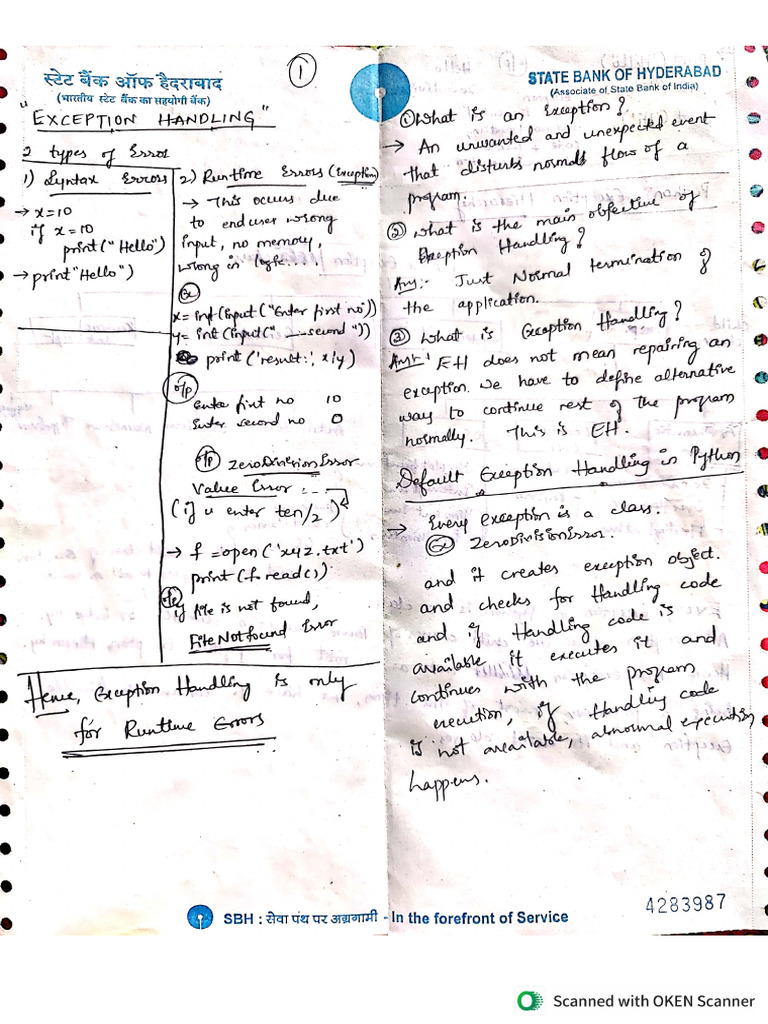 स्टेट बैंक ऑफ हैदराबाद
(भारतीय स्टेट बैंक का सहयोगी बैंक)
1
"EXCEPTION HANDLING"
2 types of Error
1) Syntax Errors
→ x=10
if x=10
print("Hello")
→ print"Hello")
2) Runtime Errors (Exception)
→ This occurs due
to end user wrong
input, no memory,
wrong in logic....
Ex
x= int(input("Enter first no"))
y= int(input("__second"))
print('result:', x/y)
o/p
Enter first no 10
Enter second no 0
o/p ZeroDivisionError
Value Error :--
(if u enter ten/2)
→ f =open('xyz.txt')
print(f.read())
o/p
if file is not found,
FileNotFound Error
Hence, Exception Handling is only
for Runtime Errors
STATE BANK OF HYDERABAD
(Associate of State Bank of India)
① What is an Exception?
→ An unwanted and unexpected event
that disturbs normal flow of a
program.
② What is the main objective of
Exception Handling?
Ans:- Just Normal termination of
the application.
③ What is Exception Handling?
Ans:- EH does not mean repairing an
exception. We have to define alternative
way to continue rest of the program
normally. This is EH.
Default Exception Handling in Python
→ Every exception is a class.
Ex ZeroDivisionError.
and it creates exception object.
and checks for Handling code
and if Handling code is
available it executes it and
continues with the program
execution, if Handling code
is not available, abnormal execution
happens.
SBH : सेवा पंथ पर अग्रगामी - In the forefront of Service
4283987
Scanned with OKEN Scanner